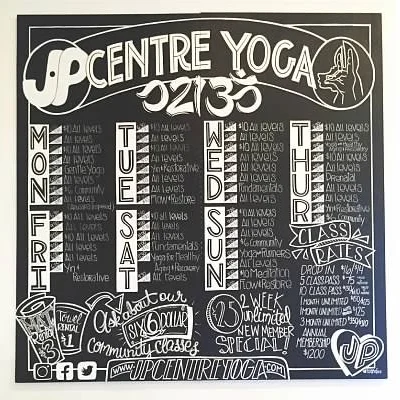 JP CENTRE YOGA
MON
$10 All Levels
All Levels
All Levels
Gentle Yoga
All Levels
$6 Community
All Levels
TUE
$10 All Levels
All Levels
All Levels
Yin + Restorative
All Levels
All Levels
Flow + Restore
WED
$10 All Levels
All Levels
All Levels
All Levels
All Levels
Fundamentals
All Levels
THUR
$10 All Levels
All Levels
All Levels
Prenatal
All Levels
Yin + Restorative
$6 Community
FRI
All Levels
$10 All Levels
All Levels
All Levels
Yin + Restorative
SAT
$10 all Levels
all Levels
all Levels
Fundamentals
Yoga for Healthy Aging + Recovery
All Levels
SUN
$10 all Levels
all Levels
all Levels
$6 Community
Yoga for Runners
All Levels
$10 Meditation
Flow + Restore
CLASS RATES
DROP IN $16/$14
5 CLASS PASS $75
10 CLASS PASS
1 MONTH UNLIMITED
1 MONTH UNLIMITED $125
3 MONTH UNLIMITED
ANNUAL MEMBERSHIP $1200
MAT RENTAL $3
Towel RENTAL $1
Ask about our
SIX 6 DOLLAR
community classes
$25 2 WEEK
unlimited
NEW MEMBER
SPECIAL!
JP
www.JPCENTREYOGA.com